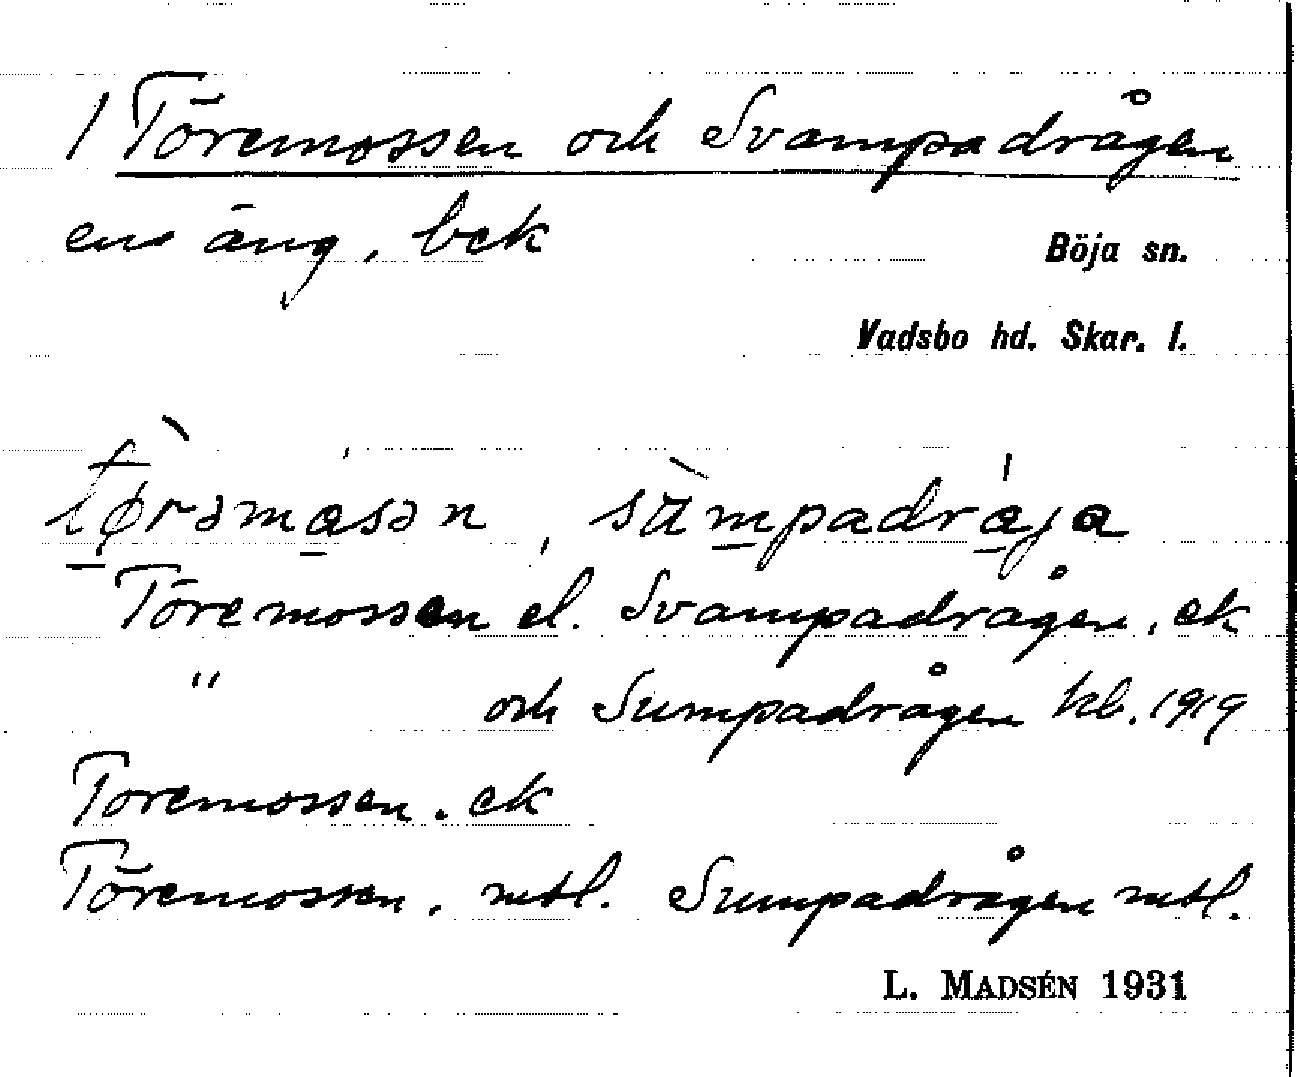 1 Töremossen och Svampadrågen
ens äng, bek
Böja sn.
Vadsbo hd. Skar. l.
tø̀rəmåsən, sàmpadråja
Töremossen el. Svampadrågen, ek
" och Sumpadrågen kb. 1919
Toremossen. ek
Töremossen, mtl. Sumpadrågen mtl.
L. MADSÉN 1931